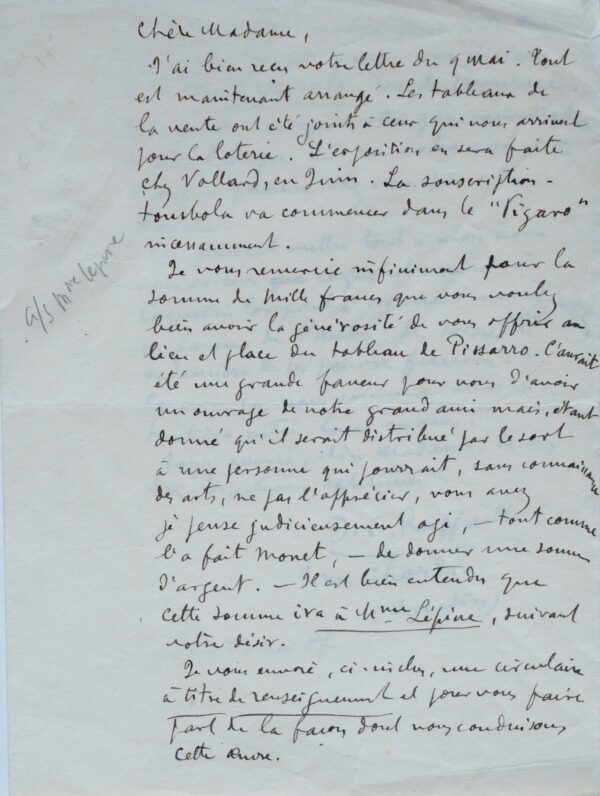 Chère Madame,
J'ai bien reçu votre lettre du 9 mai. Tout
est maintenant arrangé. Les tableaux de
la vente ont été joints à ceux qui nous arrivent
pour la loterie. L'exposition en sera faite
chez Vollard, en Juin. La souscription-
tombola va commencer dans le "Figaro"
incessamment.
Je vous remercie infiniment pour la
somme de Mille francs que vous voulez
bien avoir la générosité de nous offrir au
lieu et place du tableau de Pissarro. C'aurait
été une grande faveur pour nous d'avoir
un ouvrage de notre grand ami mais, étant
donné qu'il serait distribué par le sort
à une personne qui pourrait, sans connaissance
des arts, ne pas l'apprécier, vous avez
je pense judicieusement agi, — tout comme
l'a fait Monet, — de donner une somme
d'argent. — Il est bien entendu que
cette somme ira à Mme Lépine, suivant
votre désir.
Je vous envoie, ci-inclus, une circulaire
à titre de renseignement et pour vous faire
part de la façon dont nous conduisons
cette œuvre.
a/s Mme Lépine